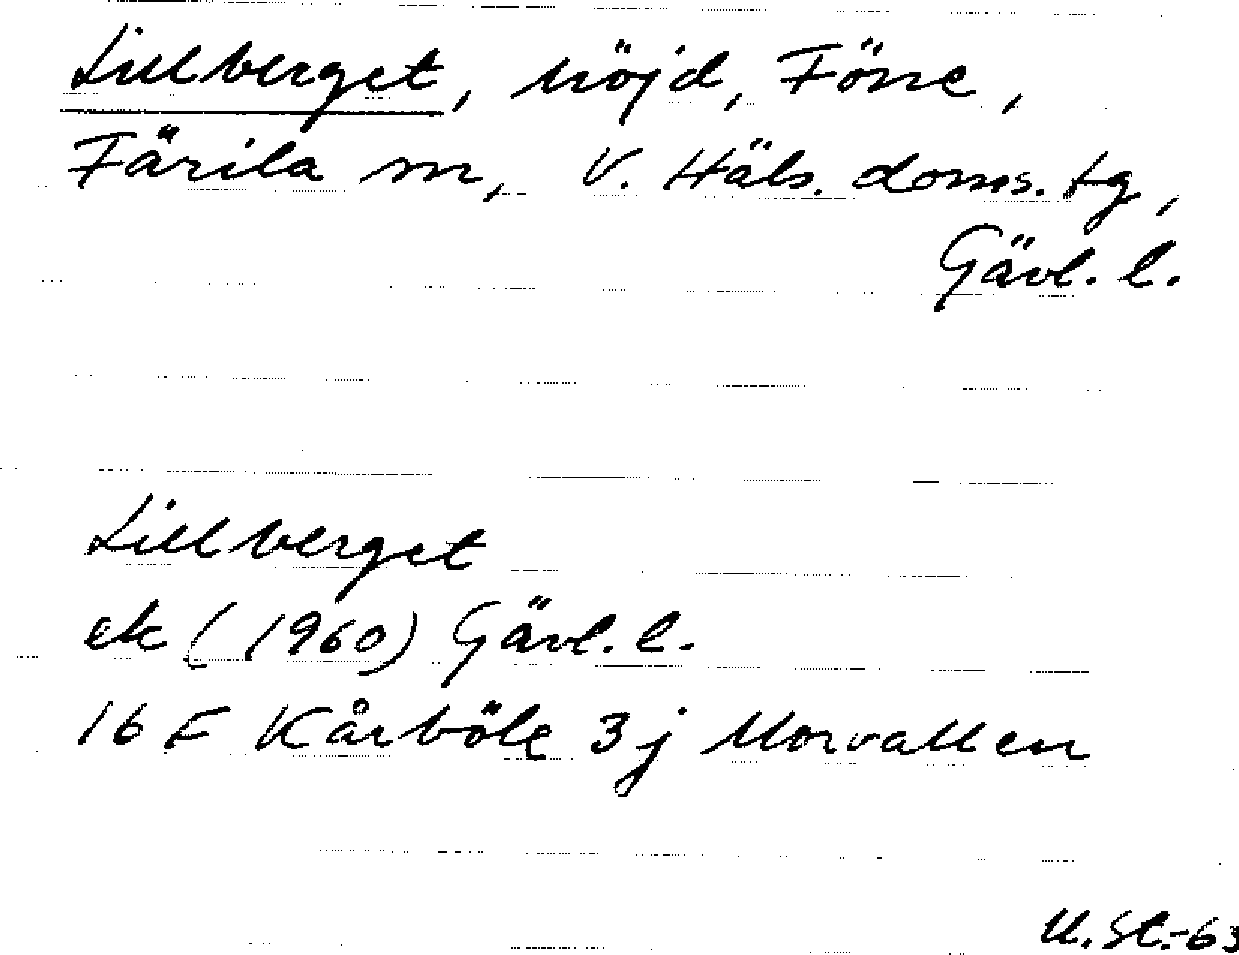 Lillberget, höjd, Föne,
Färila sn, V. Häls. doms. tg,
Gävl. l.
Lillberget
ek (1960) Gävl. l.
16 F Kårböle 3j Morvallen
U. St.-63